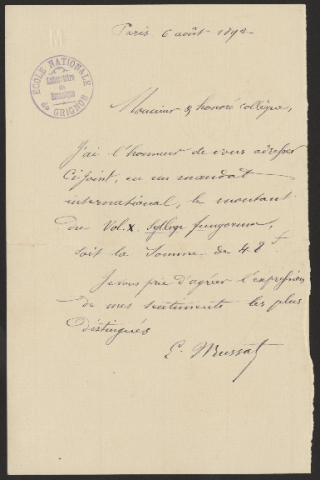 Paris 6 août 1892
ÉCOLE NATIONALE
Laboratoire
de
Botanique
de GRIGNON
Monsieur & honoré collègue,
J'ai l'honneur de vous adresser
Ci-joint, en un mandat
international, le montant
du Vol. X. Sylloge fungorum,
soit la Somme de 48 f
Je vous prie d'agréer l'expression
de mes sentiments les plus
distingués
E. Mussat